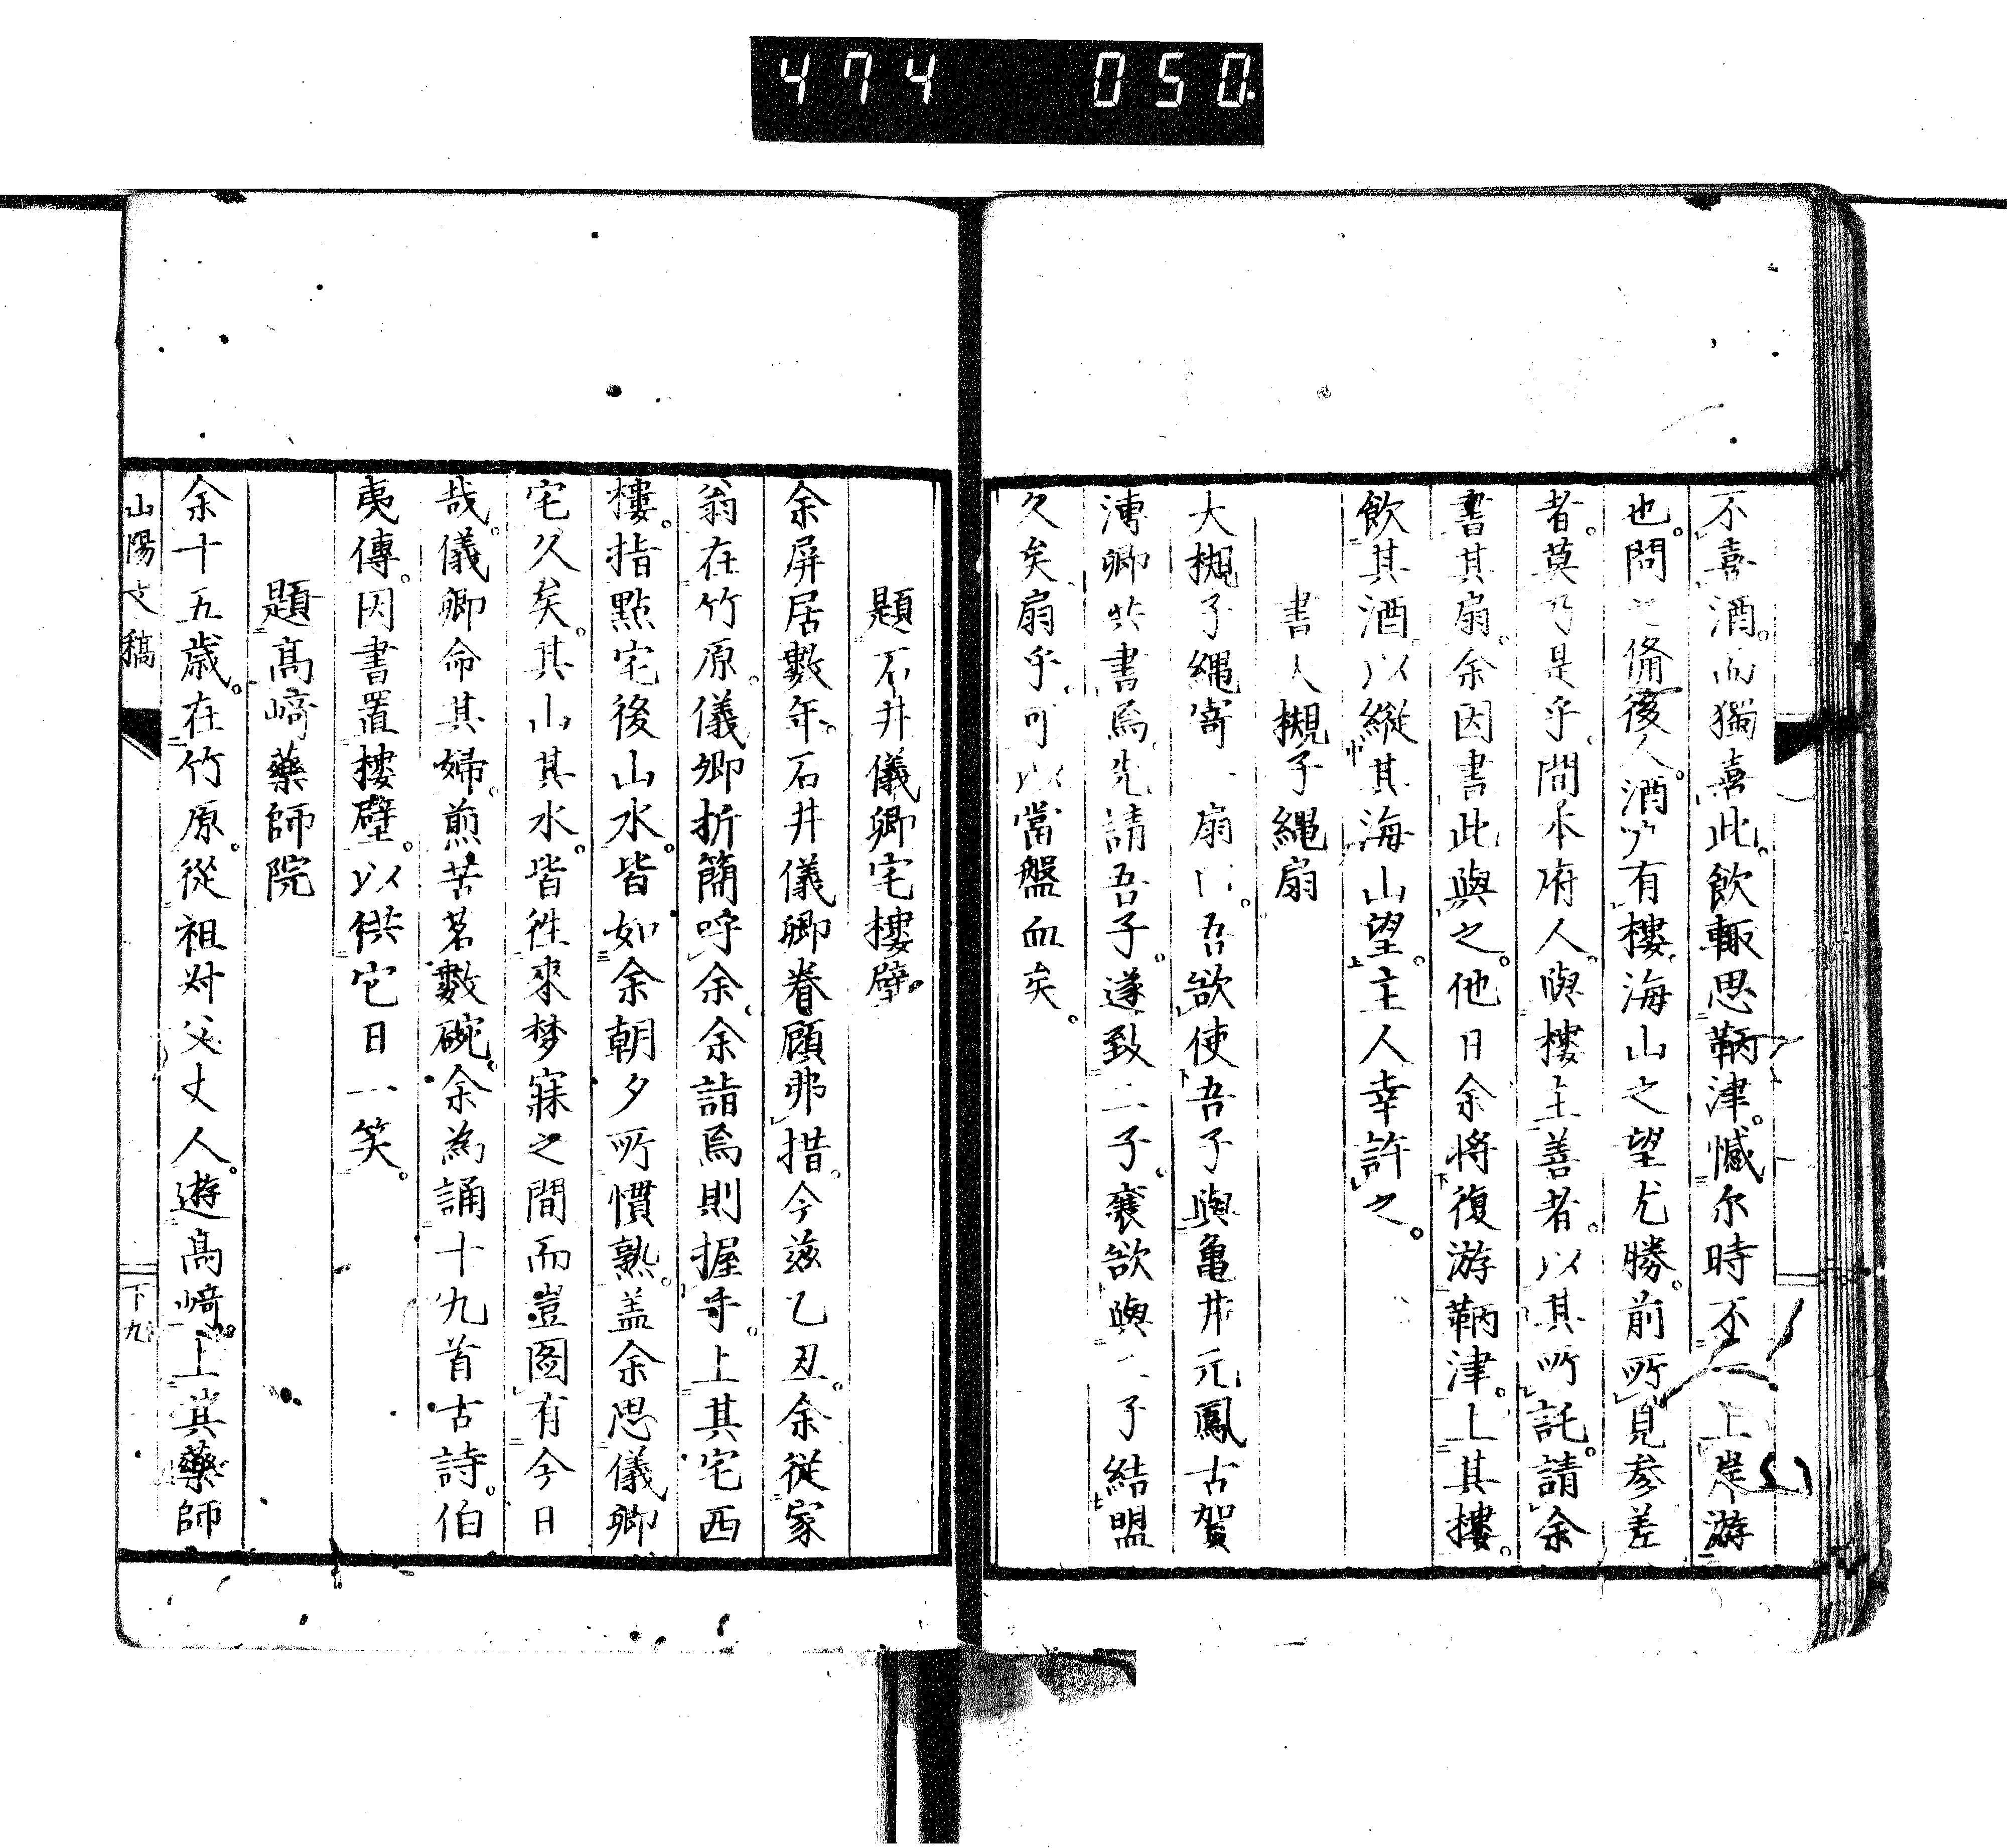 474 050.
不喜酒。而獨喜此。飲輙思鞆津。憾尓時不一上岸游
也。問之備後人。酒以有樓。海山之望尤勝。前所見参差
者。莫乃是乎。間本府人。與樓主善者。以其所託。請余
書其扇。余因書此與之。他日余将復游鞆津。上其樓。
飲其酒。以縦其海山望。主人幸許之。
書人槻子縄扇
大槻子縄寄一扇以。吾欲使吾子與亀井元鳳古賀
溥卿共書焉。先請吾子。遂致二子。襄欲與二子結盟
久矣。扇乎。可以當盤血矣。
題石井儀卿宅樓壁。
余屏居數年。石井儀卿眷顧弗措。今茲乙丑。余從家
翁在竹原。儀卿折簡呼余。余詣焉則握手。上其宅西
樓。指點宅後山水。皆如余朝夕所慣熟。盖余思儀卿
宅久矣。其山其水。皆徃来梦寐之間而豈图有今日
哉。儀卿命其婦。煎苦茗數碗。余為誦十九首古詩。伯
夷傳。因書置樓壁。以供它日一笑。
題髙﨑藥師院
余十五歳。在竹原。從祖叔父丈人。遊髙﨑。上其藥師
山陽文稿
下九